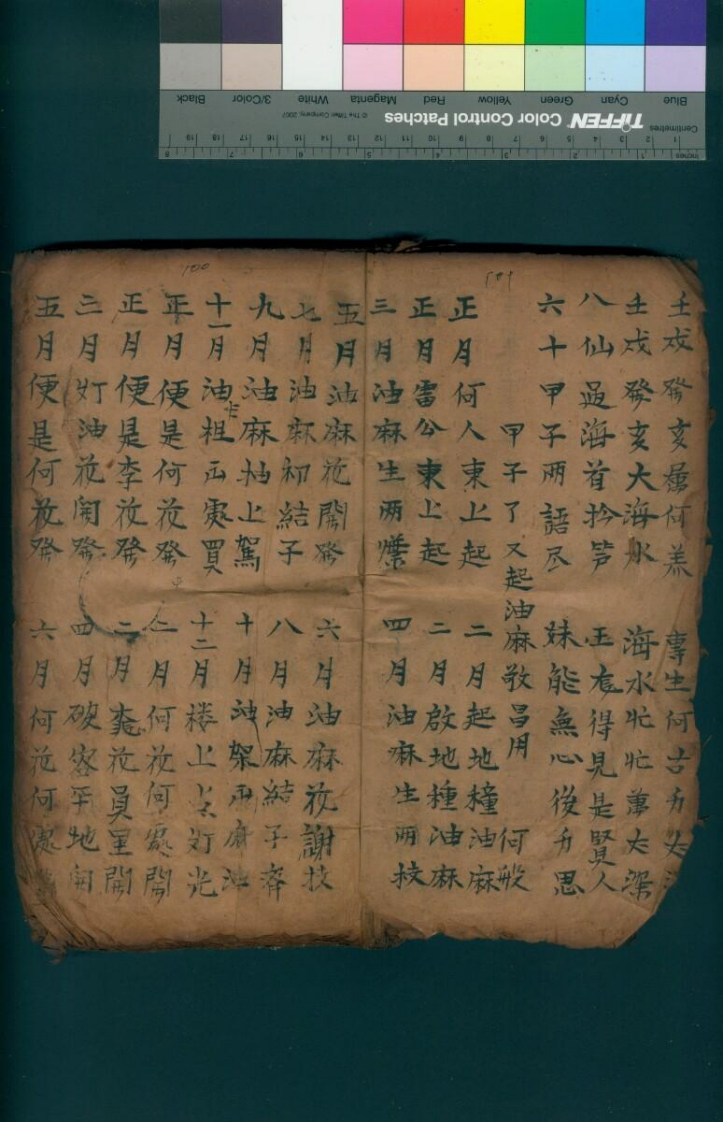 壬戌發亥屬何 專生何古
壬戌發亥大海水 海水忙忙萬丈深
八仙過海首 得見是賢人
六十甲子兩語尽 妹能無心後思
甲子了又起油麻敬昌用 何般
正月何人東上起 二月起地種油麻
正月雷公東上起 二月啟地種油麻
三月油麻生兩葉 四月油麻生兩枝
五月油麻花開發 六月油麻花謝枝
七月油麻初結子 八月油麻結子齊
九月油麻抽上駕 十月油架兩麻油
十一月油柤出處買 十二月楼上点灯光
正月便是何花發 二月何花何處開
正月便是李花發 二月花員里開
三月灯油花開發 四月破容平地開
五月便是何花發 六月何花何處
100
101
Inches
Centimetres
TIFFEN Color Control Patches
© The Tiffen Company, 2007
Blue
Cyan
Green
Yellow
Red
Magenta
White
3/Color
Black